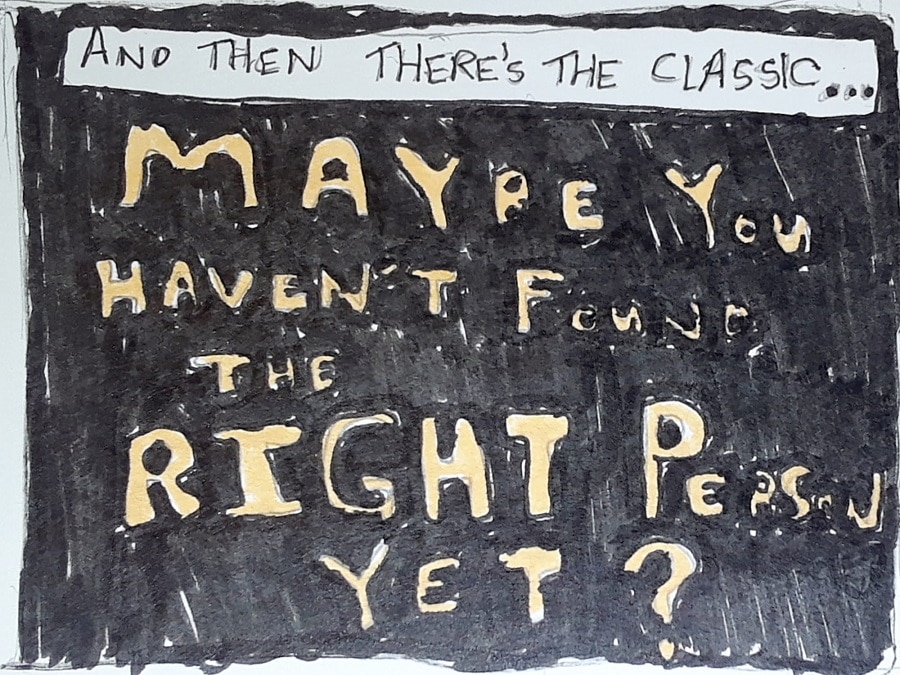 AND THEN THERE'S THE CLASSIC...
MAYBE YOU
HAVEN'T FOUND
THE
RIGHT PERSON
YET?